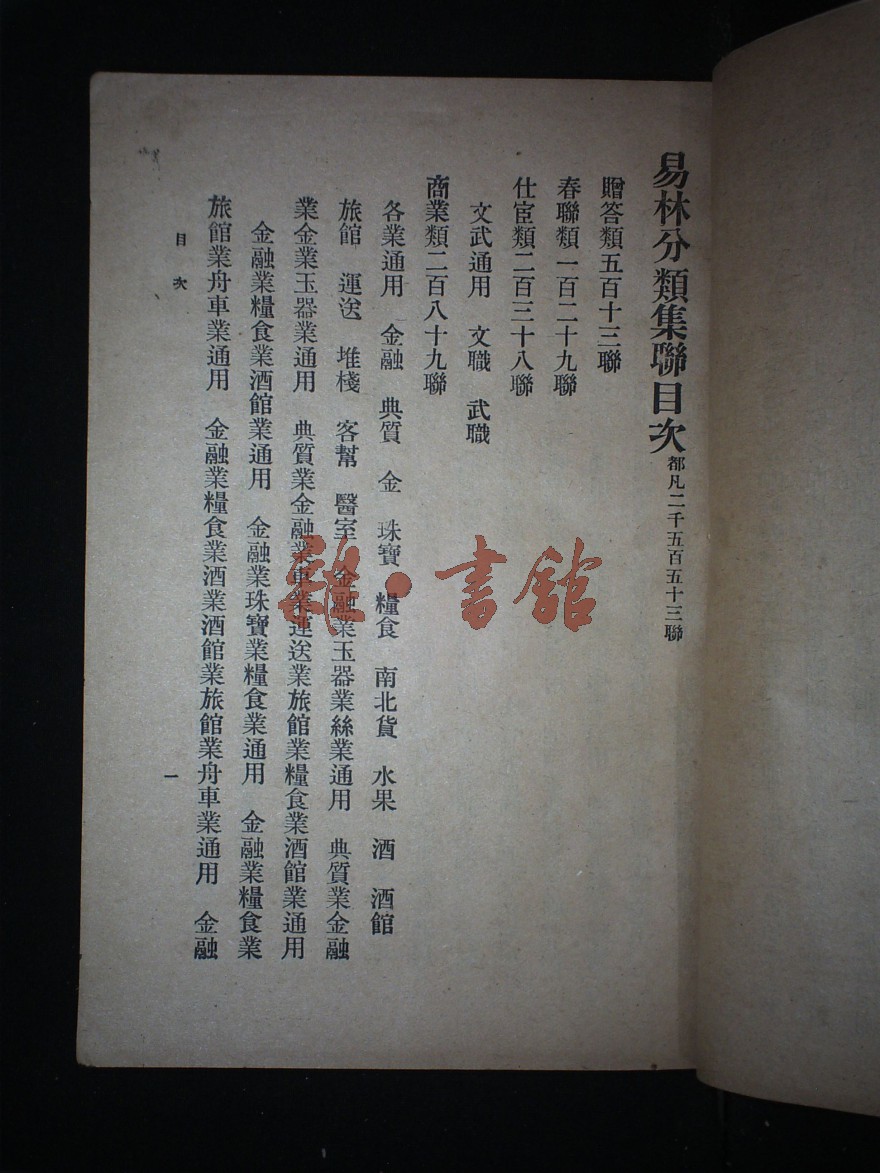 易林分類集聯目次都凡二千五百五十三聯
贈答類五百十三聯
春聯類一百二十九聯
仕宦類二百三十八聯
文武通用　文職　武職
商業類二百八十九聯
各業通用　金融　典質　金　珠寶　糧食　南北貨　水果　酒　酒館
旅館　運送　堆棧　客幫　醫室　金融業玉器業絲業通用　典質業金融
業金業玉器業通用　典質業金融業車業運送業旅館業糧食業酒館業通用
金融業糧食業酒館業通用　金融業珠寶業糧食業通用　金融業糧食業
旅館業舟車業通用　金融業糧食業酒業酒館業旅館業舟車業通用　金融
目次
一
雜·書館